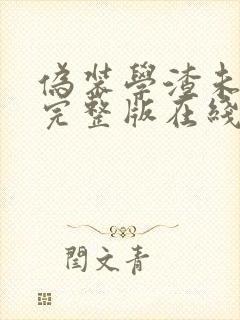 偽裝學渣未
完整版在綫
閆文青